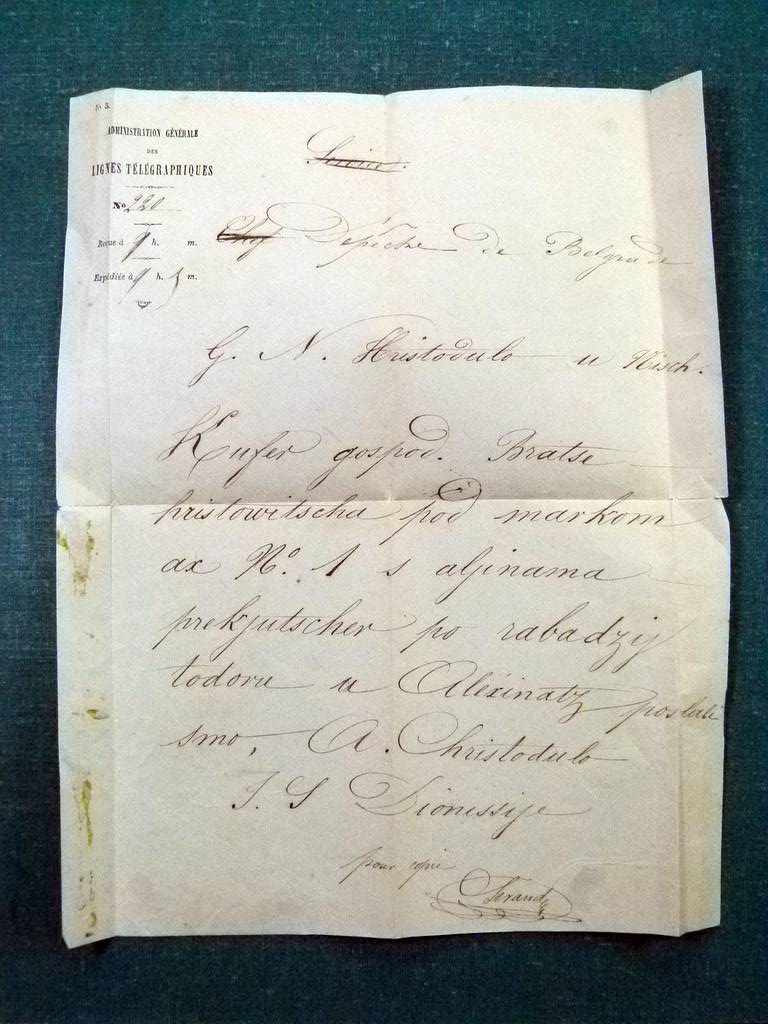 N. 3.
ADMINISTRATION GÉNÉRALE
DES
LIGNES TÉLÉGRAPHIQUES
No 220
Reçue à 9 h. m.
Expédiée à 9 h. 5 m.
Service.
Chef Depéche de Belgrade
G. N. Hristodulo u Nisch.
Kufer gospod. Bratse
hristowitscha pod markom
ax No. 1 s aljinama
prekjutscher po rabadzij
todoru u Alexinatz poslali
smo, A. Christodulo
I. S Dionissije
pour copie